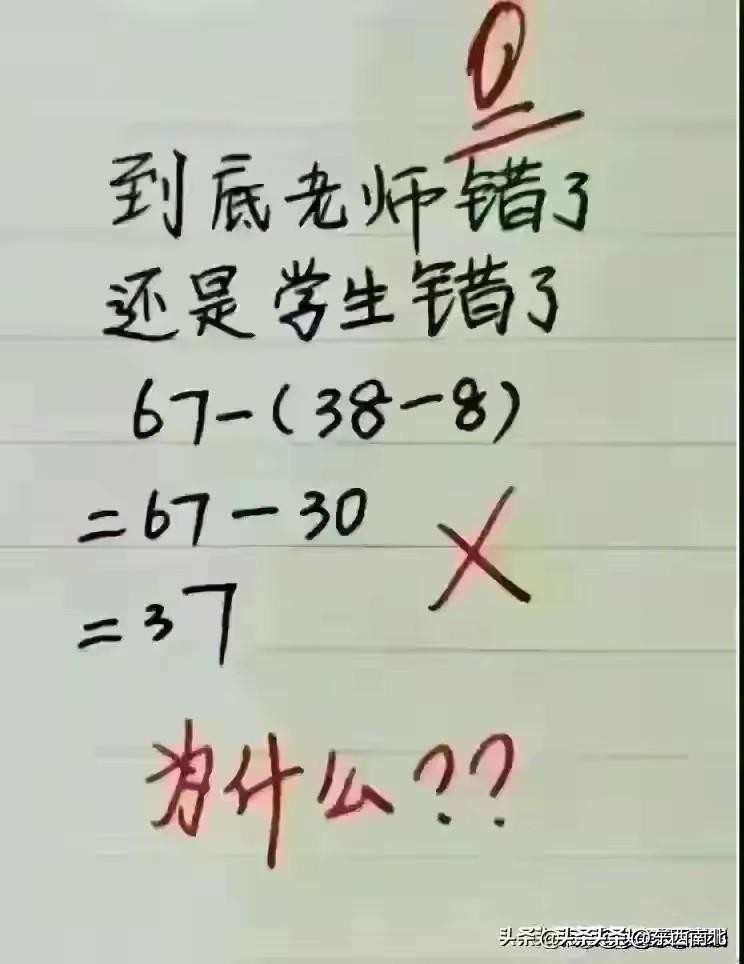 0
到底老师错了
还是学生错了
67-(38-8)
=67-30
=37
为什么??
头条@东西南北